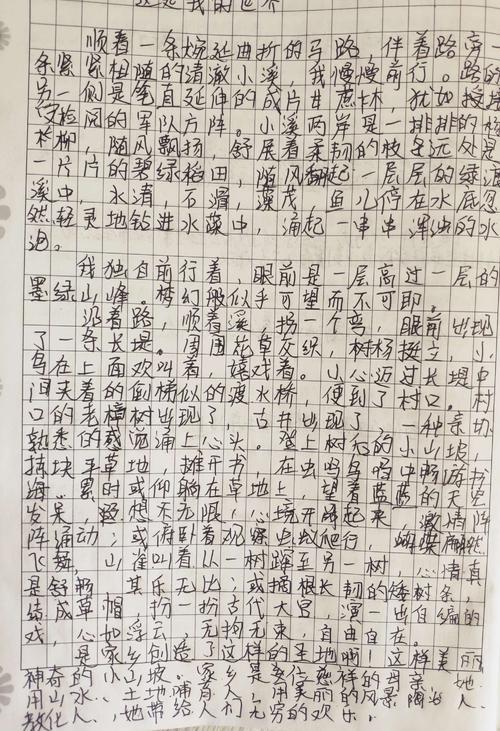 这是我的世个
顺着一条蜿延曲折的马路，伴着路旁
条紧紧相随的清澈小溪，我慢慢前行。路的
另一侧是笔直延伸的成片甘蔗林，犹如授接
受检阅的军队方阵。小溪两岸是一排排的杨
柳，随风飘扬，舒展着柔韧的枝
一片片的碧绿稻田，随风 起一层层的绿浪
溪中，水清，石滑，藻茂，鱼儿停在水底忽
然轻灵地钻进水藻中，涌起一串串浑浊的水
泡。
我独自前行着，眼前是一层高过一层的
墨绿山峰。梦幻般似乎可望而不可即。
沿着路，顺着溪，拐一个弯，眼前出现
了一条长堤。周围花草交织，树杨挺立，小
鸟在上面欢叫着，嬉戏着。小心迈过长堤中
间夹着的倒梯似的渡水桥，便到了村口。村
口的老樟树出现了，古井出现了，一种亲切
熟悉的感 涌上心头。登上树 的小山坡，
拣块平草地，摊开书，在虫鸣鸟鸣中畅游书
海。累时或仰躺在草地上，望着蓝蓝的天空
发呆，遐想天无限，心境开 起来，激情阵
阵涌动；或俯卧着观 虫蚁爬行，蝴蝶翩然
飞舞，山雀叫着从一树蹿至另一树，心情真
是舒畅 其乐无比；或摘根长韧的矮树条，
结成草帽 扮一扮古代大 演一出自编的
戏，心如浮云，无拘无束，自由自在。
是家乡创造了这样的圣地啊！这样美丽
神奇的小山坡。家乡是一位慈祥的母亲 她
用山水哺育人，用美丽的风景陶冶人，
教化人，土地带给人们无穷的欢乐。